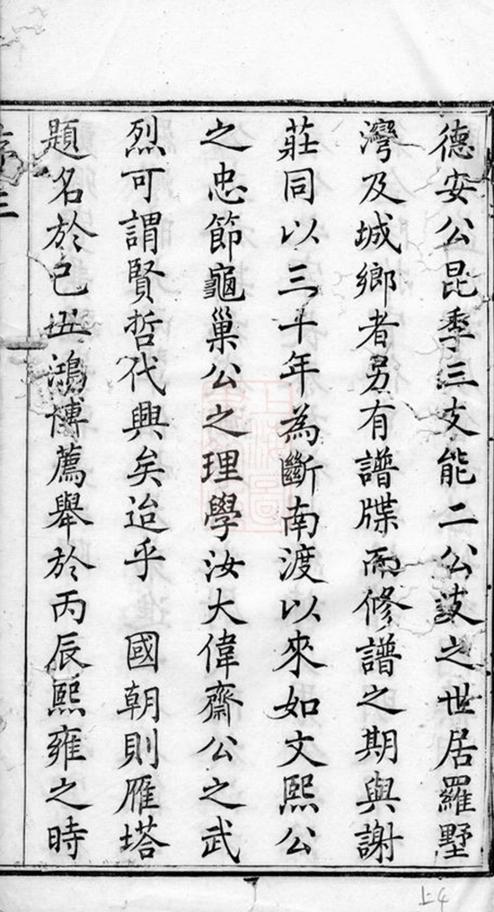 德安公昆季三支能二公詖之世居羅墅
灣及城鄉者另有譜牒而修譜之期與謝
莊同以三十年為斷南渡以來如文熙公
之忠節龜巢公之理學汝大偉齋公之武
烈可謂賢哲代興矣迨乎　國朝則雁塔
題名於已丑鴻博薦舉於丙辰熙雍之時
上4